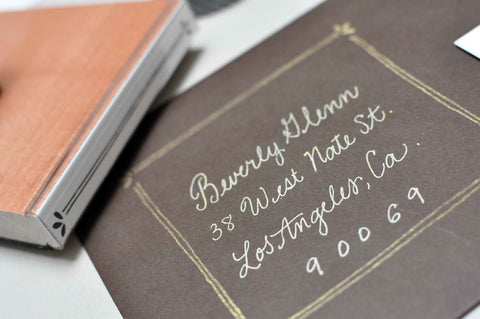 Beverly Glenn
38 West Nate St.
Los Angeles, Ca.
90069